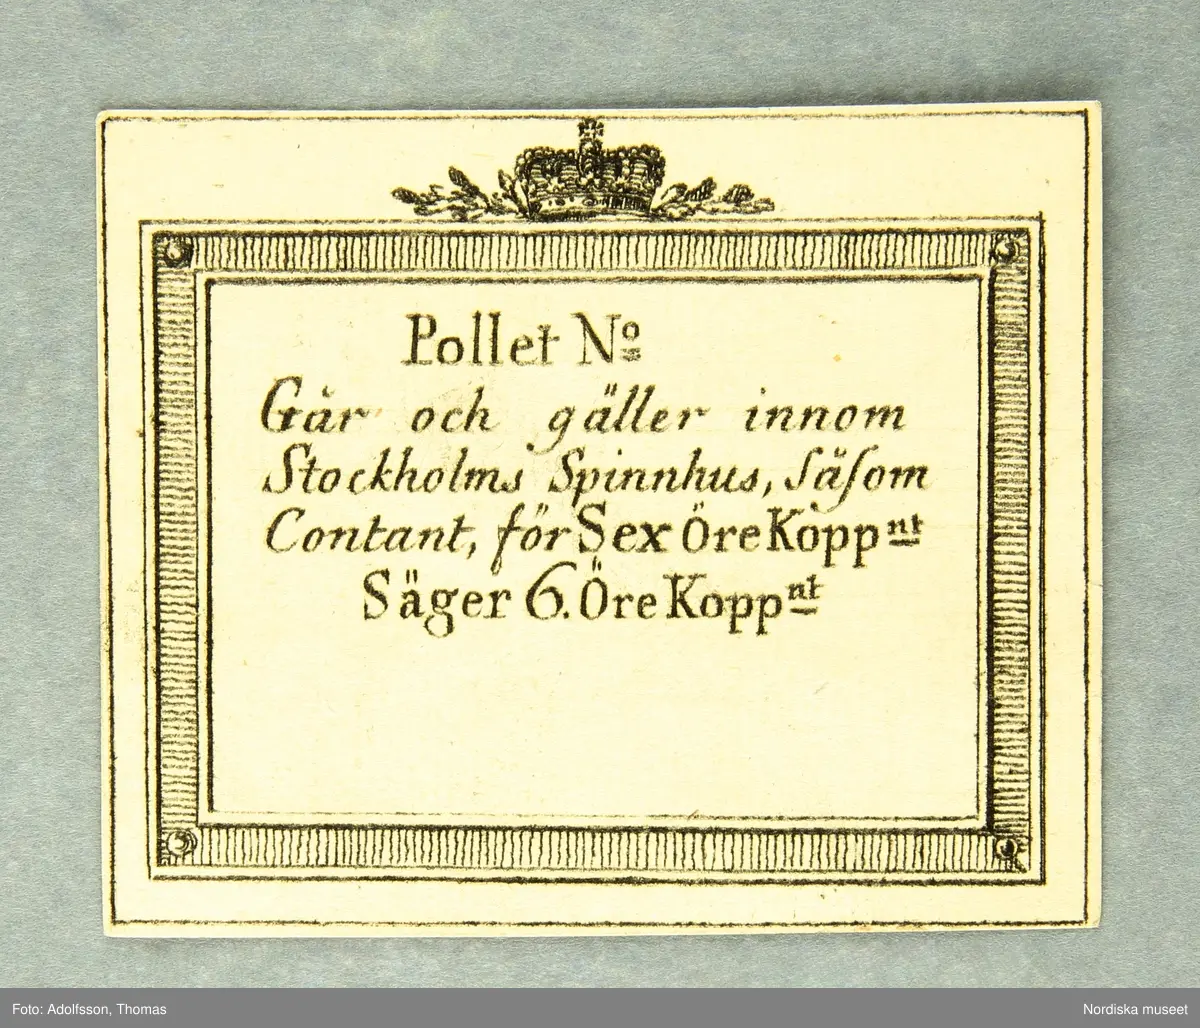 Pollet No
Går och gäller innom
Stockholms Spinnhus, såſom
Contant, för Sex Öre Koppnt
Säger 6. Öre Koppnt
Foto: Adolfsson, Thomas
Nordiska museet